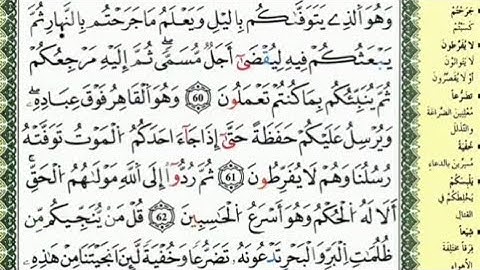 وَهُوَ اَلذِے يَتَوَفَّىٰكُم بِالَيْلِ وَيَعْلَمُ مَا جَرَحْتُم بِالنَّهَارِ ثُمَّ
يَبْعَثُكُمْ فِيهِ لِيُقْضَىٰٓ أَجَلٌ مُّسَمًّى ثُمَّ إِلَيْهِ مَرْجِعُكُمْ
ثُمَّ يُنَبِّئُكُم بِمَا كُنتُمْ تَعْمَلُونَ 60 وَهُوَ اَلْقَاهِرُ فَوْقَ عِبَادِهِۦ
وَيُرْسِلُ عَلَيْكُمْ حَفَظَةً حَتَّىٰٓ إِذَا جَآءَ احَدَكُمُ اُلْمَوْتُ تَوَفَّتْهُ
رُسُلُنَا وَهُمْ لَا يُفَرِّطُونَ 61 ثُمَّ رُدُّوٓا إِلَى اَللَّهِ مَوْلَىٰهُمُ اُلْحَقِّ
أَلَا لَهُ اُلْحُكْمُ وَهُوَ أَسْرَعُ اُلْحَٰسِبِينَ 62 قُلْ مَنْ يُنَجِّيكُم مِّن
ظُلُمَٰتِ اِلْبَرِّ وَالْبَحْرِ تَدْعُونَهُۥ تَضَرُّعًا وَخُفْيَةً لَّئِنَ اَنجَيْتَنَا مِنْ هَٰذِهِۦ
جَرَحْتُم
كَسَبْتُمْ
لَا يُفَرِّطُونَ
لَا يَتَوَانَوْنَ
أوْ لَا يُقَصِّرُونَ
تَضَرُّعاً
مُعْلِنِينَ الضَّرَاعَةَ
وَالتَّذَلُّلَ
خُفْيَةً
مُسِرِّينَ بِالدعاءِ
يَلْبِسَكُمْ
يَخْلِطَكُمْ فِي
القتالِ
شِيَعاً
فِرَقاً مُخْتَلِفَةَ
الأهواءِ